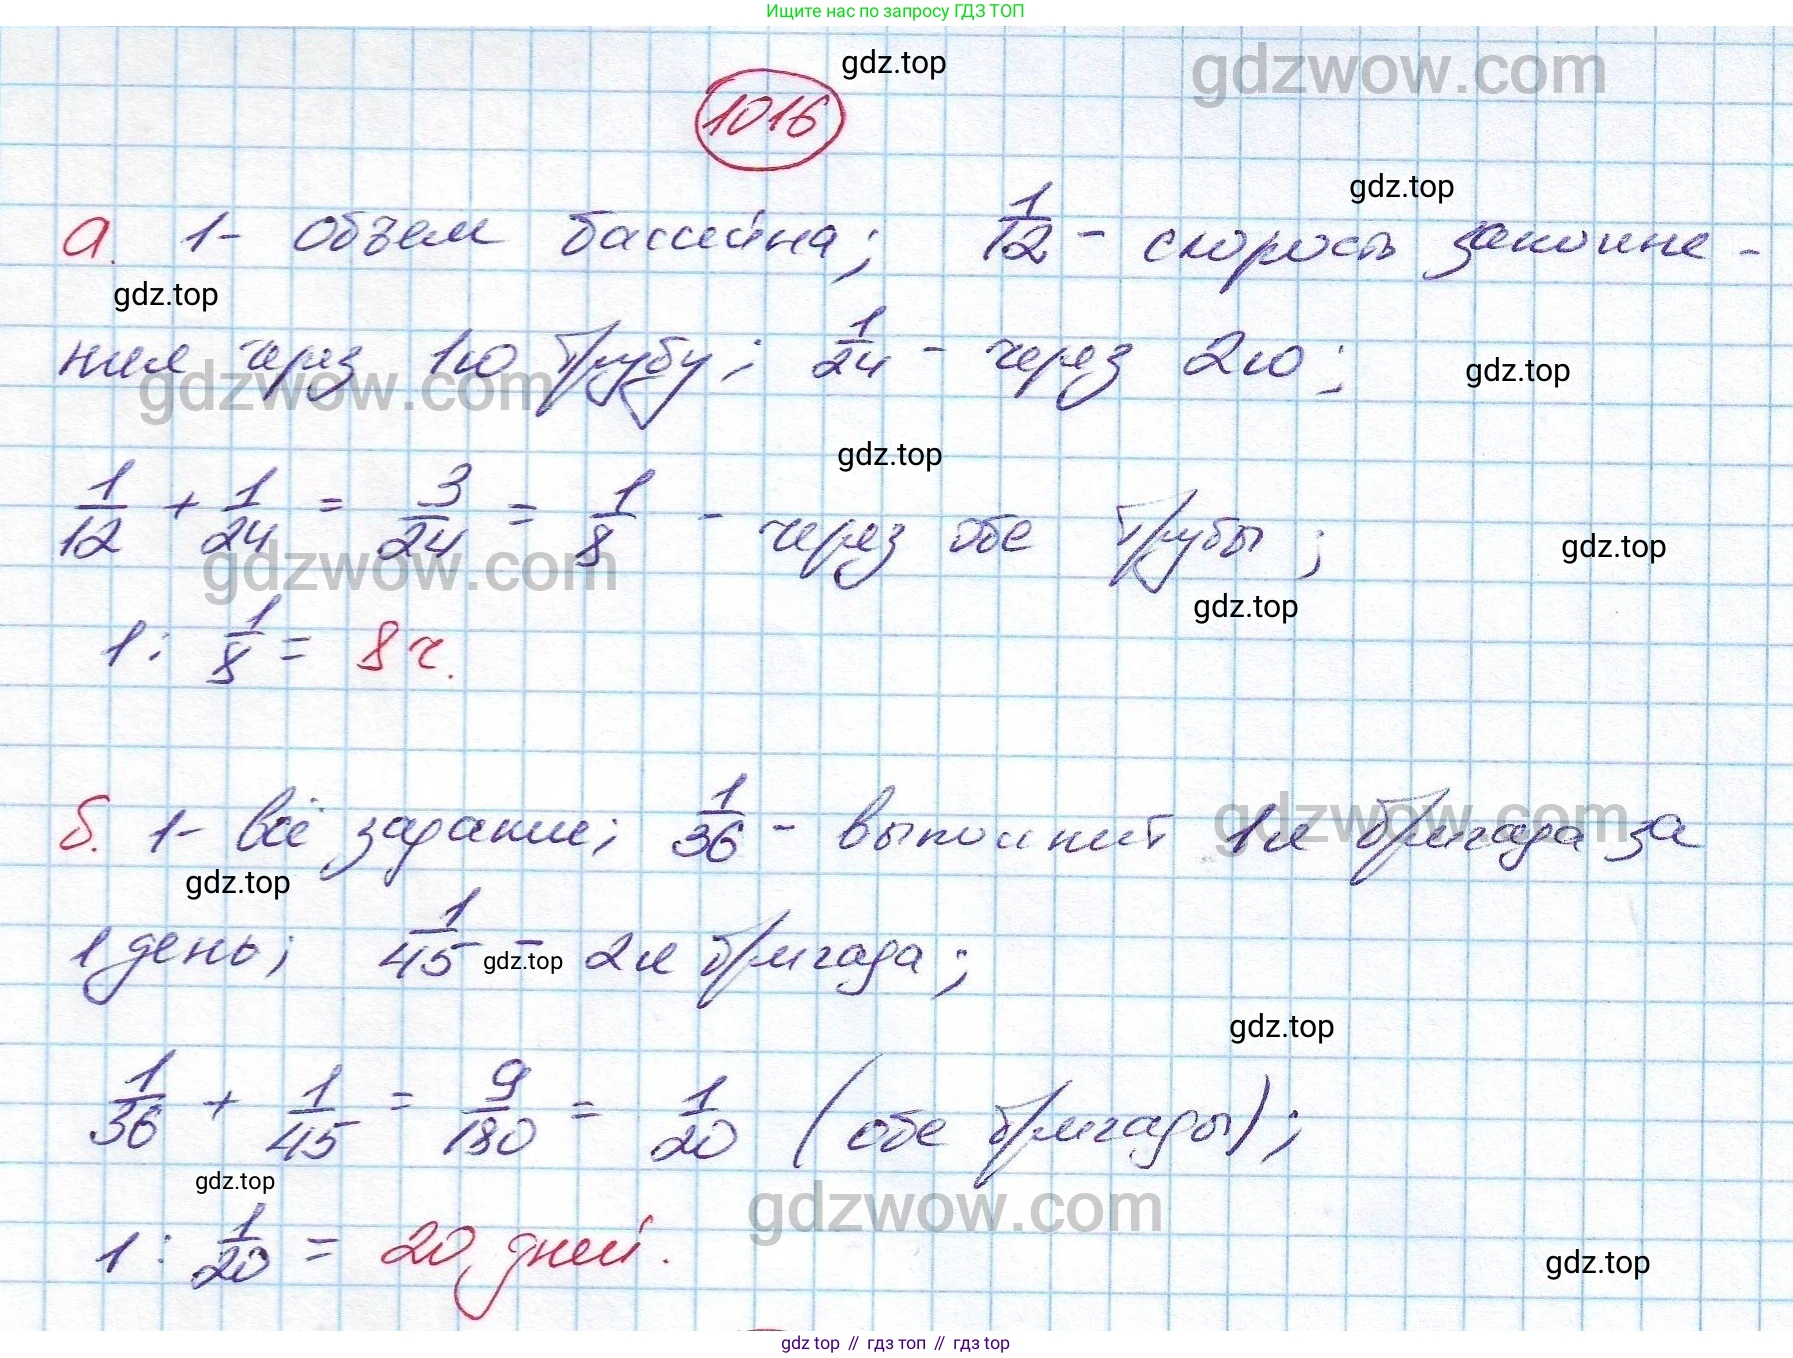 Ищите нас по запросу ГДЗ ТОП
gdz.top
gdzwow.com
1016
gdz.top
а. 1 - объем бассейна; 1/12 - скорость заполне-
gdz.top
ния через 1ю трубу; 1/24 - через 2ю;
gdz.top
gdzwow.com
gdz.top
1/12 + 1/24 = 3/24 = 1/8 - через обе трубы;
gdz.top
gdzwow.com
gdz.top
1 : 1/8 = 8 ч.
б. 1 - всё задание; 1/36 - выполнит 1я бригада за
gdzwow.com
gdz.top
1 день; 1/45 - 2я бригада;
gdz.top
gdz.top
1/36 + 1/45 = 9/180 = 1/20 (обе бригады);
gdz.top
gdzwow.com
1 : 1/20 = 20 дней.
gdz.top
gdz top // гдз топ // гдз top